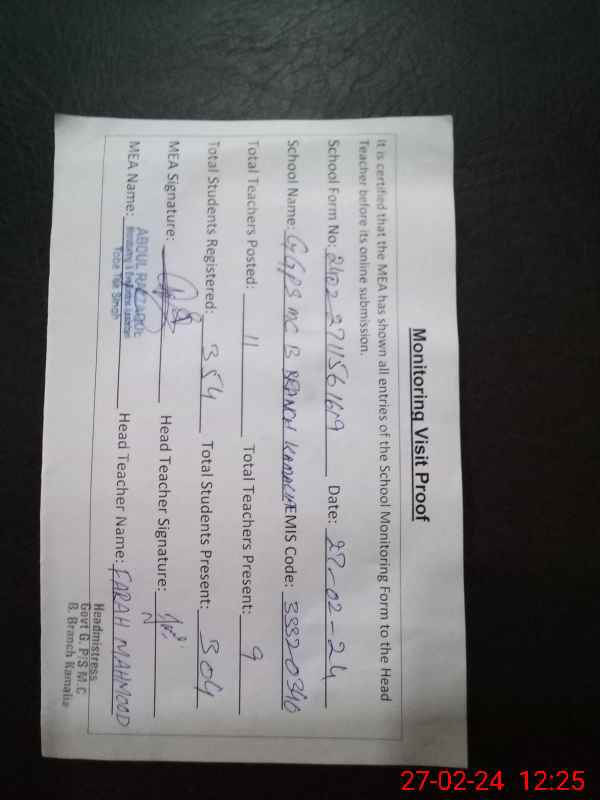 Monitoring Visit Proof
It is certified that the MEA has shown all entries of the School Monitoring Form to the Head
Teacher before its online submission.
School Form No: 24022711561619 Date: 27-02-24
School Name: GGPS MC B BRANCH KAMALIA EMIS Code: 33320340
Total Teachers Posted: 11 Total Teachers Present: 9
Total Students Registered: 354 Total Students Present: 304
MEA Signature: Head Teacher Signature:
MEA Name: Head Teacher Name: FARAH MAHMOOD
ABDUL RAZZAQ
Monitoring & Evaluation Assistant
Toba Tek Singh
Headmistress
Govt G. P/S M.C
B. Branch Kamalia
27-02-24 12:25